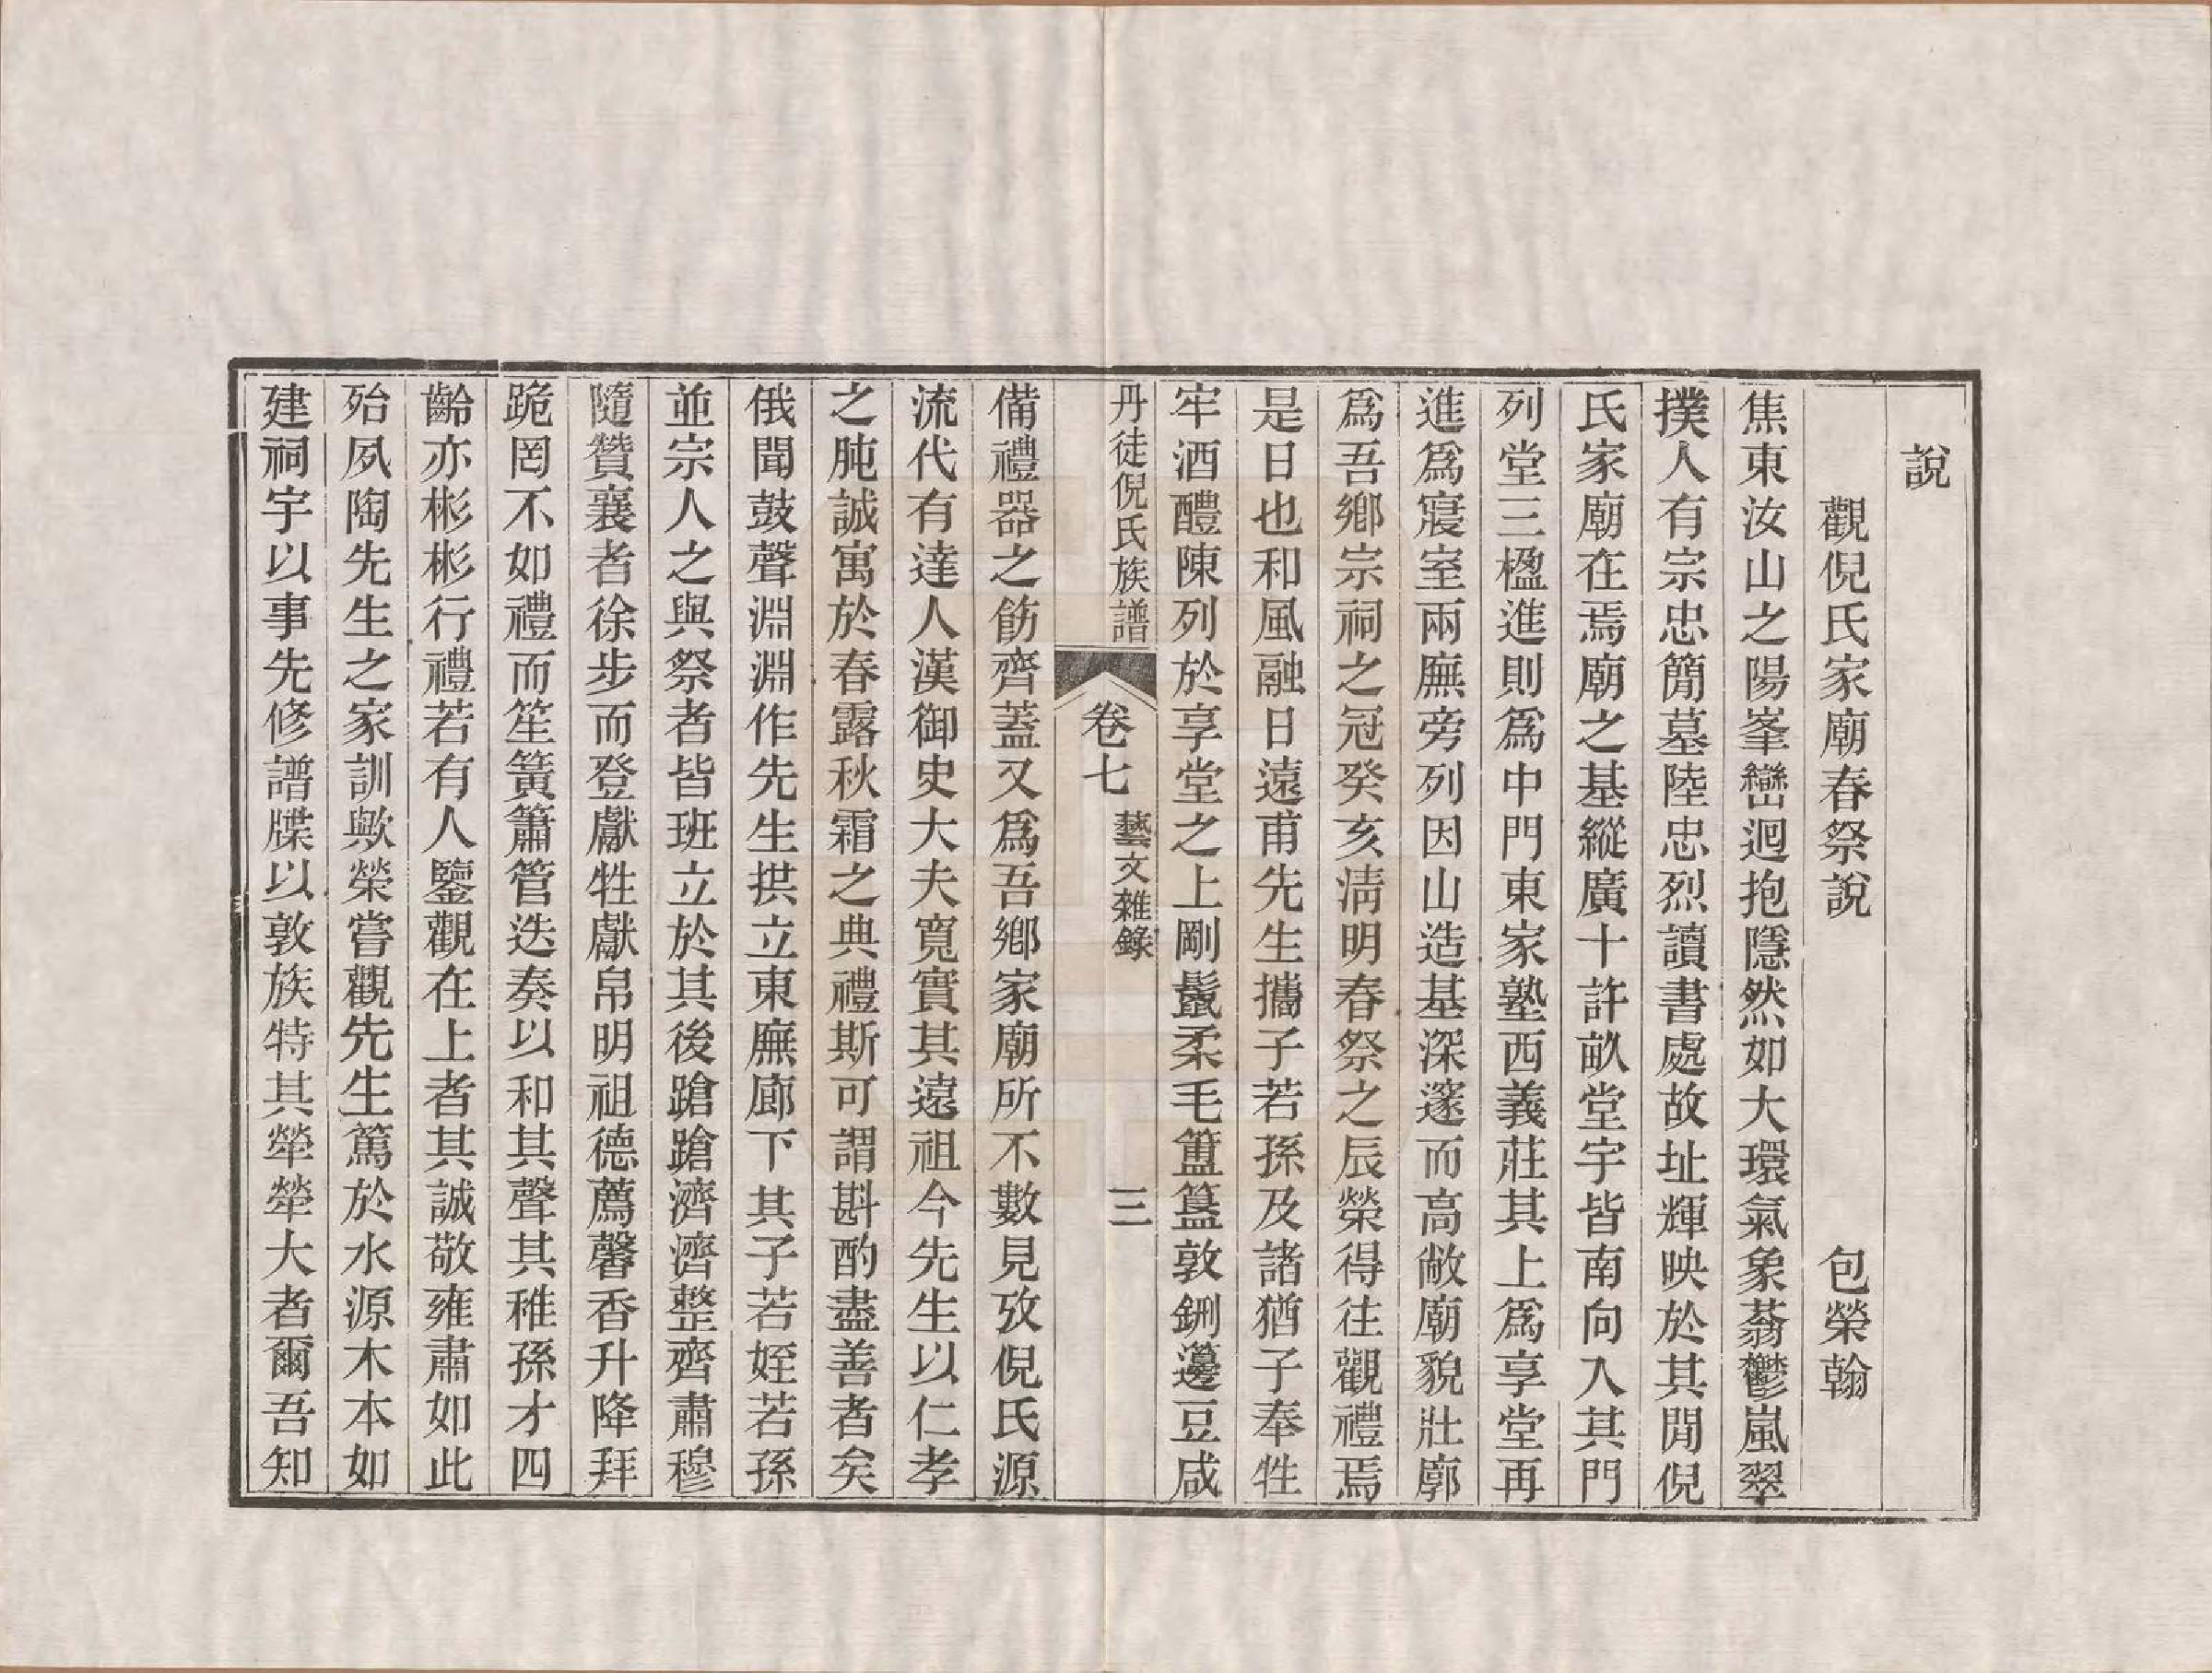 說
觀倪氏家廟春祭說 包榮翰
焦東汝山之陽峯巒迴抱隱然如大環氣象蓊鬱嵐翠
撲人有宗忠簡墓陸忠烈讀書處故址輝映於其閒倪
氏家廟在焉廟之基縱廣十許畝堂宇皆南向入其門
列堂三楹進則爲中門東家塾西義莊其上爲享堂再
進爲寢室兩廡旁列因山造基深邃而高敞廟貌壯廓
爲吾鄉宗祠之冠癸亥淸明春祭之辰榮得往觀禮焉
是日也和風融日遠甫先生攜子若孫及諸猶子奉牲
牢酒醴陳列於享堂之上剛鬣柔毛簠簋敦鉶籩豆咸
丹徒倪氏族譜 卷七 藝文雜錄 三
備禮器之飭齊蓋又爲吾鄉家廟所不數見攷倪氏源
流代有達人漢御史大夫寬實其遠祖今先生以仁孝
之肫誠寓於春露秋霜之典禮斯可謂斟酌盡善者矣
俄聞鼓聲淵淵作先生拱立東廡廊下其子若姪若孫
並宗人之與祭者皆班立於其後蹌蹌濟濟整齊肅穆
隨贊襄者徐步而登獻牲獻帛明祖德薦馨香升降拜
跪罔不如禮而笙簧簫管迭奏以和其聲其稚孫才四
齡亦彬彬行禮若有人鑒觀在上者其誠敬雍肅如此
殆夙陶先生之家訓歟榮嘗觀先生篤於水源木本如
建祠宇以事先修譜牒以敦族特其犖犖大者爾吾知